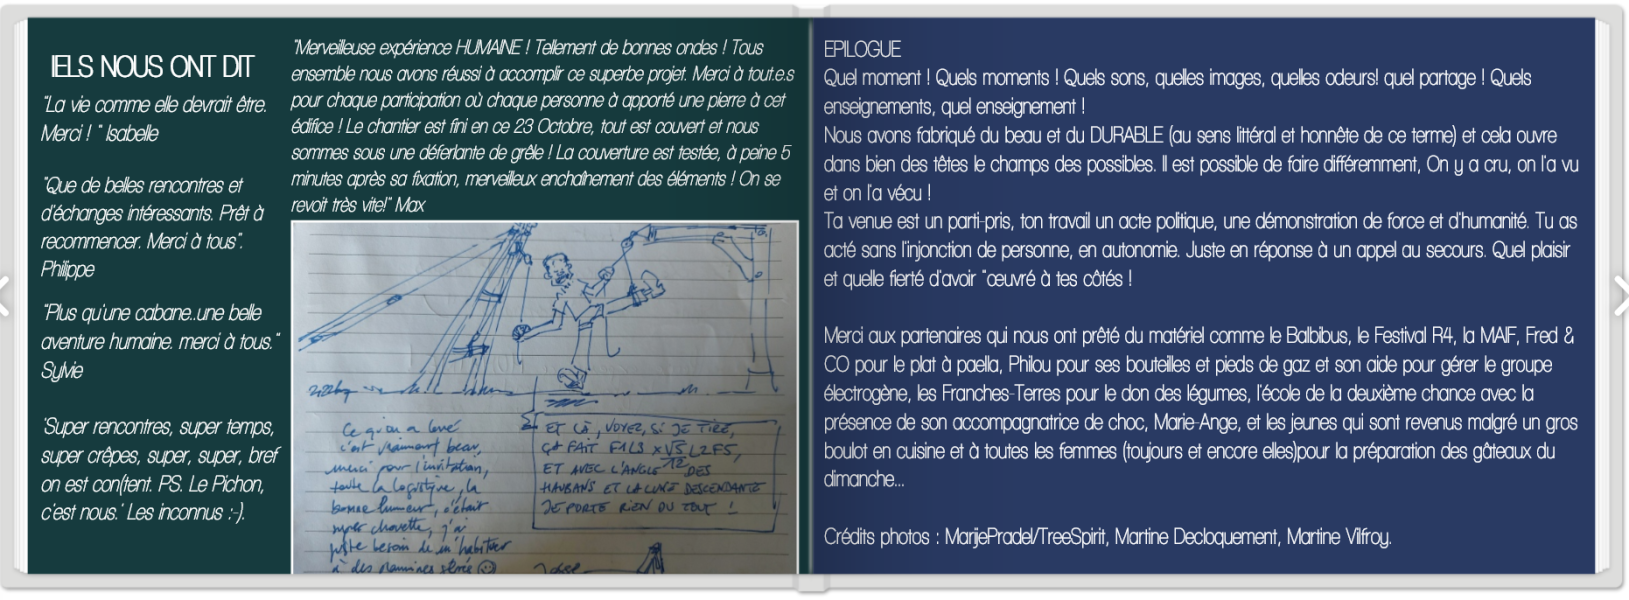 IELS NOUS ONT DIT
"La vie comme elle devrait être.
Merci ! " Isabelle
"Que de belles rencontres et
d'échanges intéressants. Prêt à
recommencer. Merci à tous".
Philippe
"Plus qu'une cabane..une belle
aventure humaine. merci à tous."
Sylvie
'Super rencontres, super temps,
super crêpes, super, super, bref
on est con(tent. PS. Le Pichon,
c'est nous.' Les inconnus :-).
"Merveilleuse expérience HUMAINE ! Tellement de bonnes ondes ! Tous
ensemble nous avons réussi à accomplir ce superbe projet. Merci à tout.e.s
pour chaque participation où chaque personne à apporté une pierre à cet
édifice ! Le chantier est fini en ce 23 Octobre, tout est couvert et nous
sommes sous une déferlante de grêle ! La couverture est testée, à peine 5
minutes après sa fixation, merveilleux enchaînement des éléments ! On se
revoit très vite!" Max
Ce qu'on a levé
c'est vraiment beau,
merci pour l'invitation,
toute la logistique, la
bonne humeur, c'était
super chouette, j'ai
juste besoin de m'habituer
à des
ET LÀ, VOYEZ, SI JE TIRE,
ÇA FAIT F1L3 x √5 L2F5,
ET AVEC L'ANGLE DES
HAUBANS ET LA LUNE DESCENDANTE
JE PORTE RIEN DU TOUT !
EPILOGUE
Quel moment ! Quels moments ! Quels sons, quelles images, quelles odeurs! quel partage ! Quels
enseignements, quel enseignement !
Nous avons fabriqué du beau et du DURABLE (au sens littéral et honnête de ce terme) et cela ouvre
dans bien des têtes le champs des possibles. Il est possible de faire différemment, On y a cru, on l'a vu
et on l'a vécu !
Ta venue est un parti-pris, ton travail un acte politique, une démonstration de force et d'humanité. Tu as
acté sans l'injonction de personne, en autonomie. Juste en réponse à un appel au secours. Quel plaisir
et quelle fierté d'avoir "œuvré à tes côtés !
Merci aux partenaires qui nous ont prêté du matériel comme le Balbibus, le Festival R4, la MAIF, Fred &
CO pour le plat à paella, Philou pour ses bouteilles et pieds de gaz et son aide pour gérer le groupe
électrogène, les Franches-Terres pour le don des légumes, l'école de la deuxième chance avec la
présence de son accompagnatrice de choc, Marie-Ange, et les jeunes qui sont revenus malgré un gros
boulot en cuisine et à toutes les femmes (toujours et encore elles)pour la préparation des gâteaux du
dimanche...
Crédits photos : MarijePradel/TreeSpirit, Martine Decloquement, Martine Vilfroy.